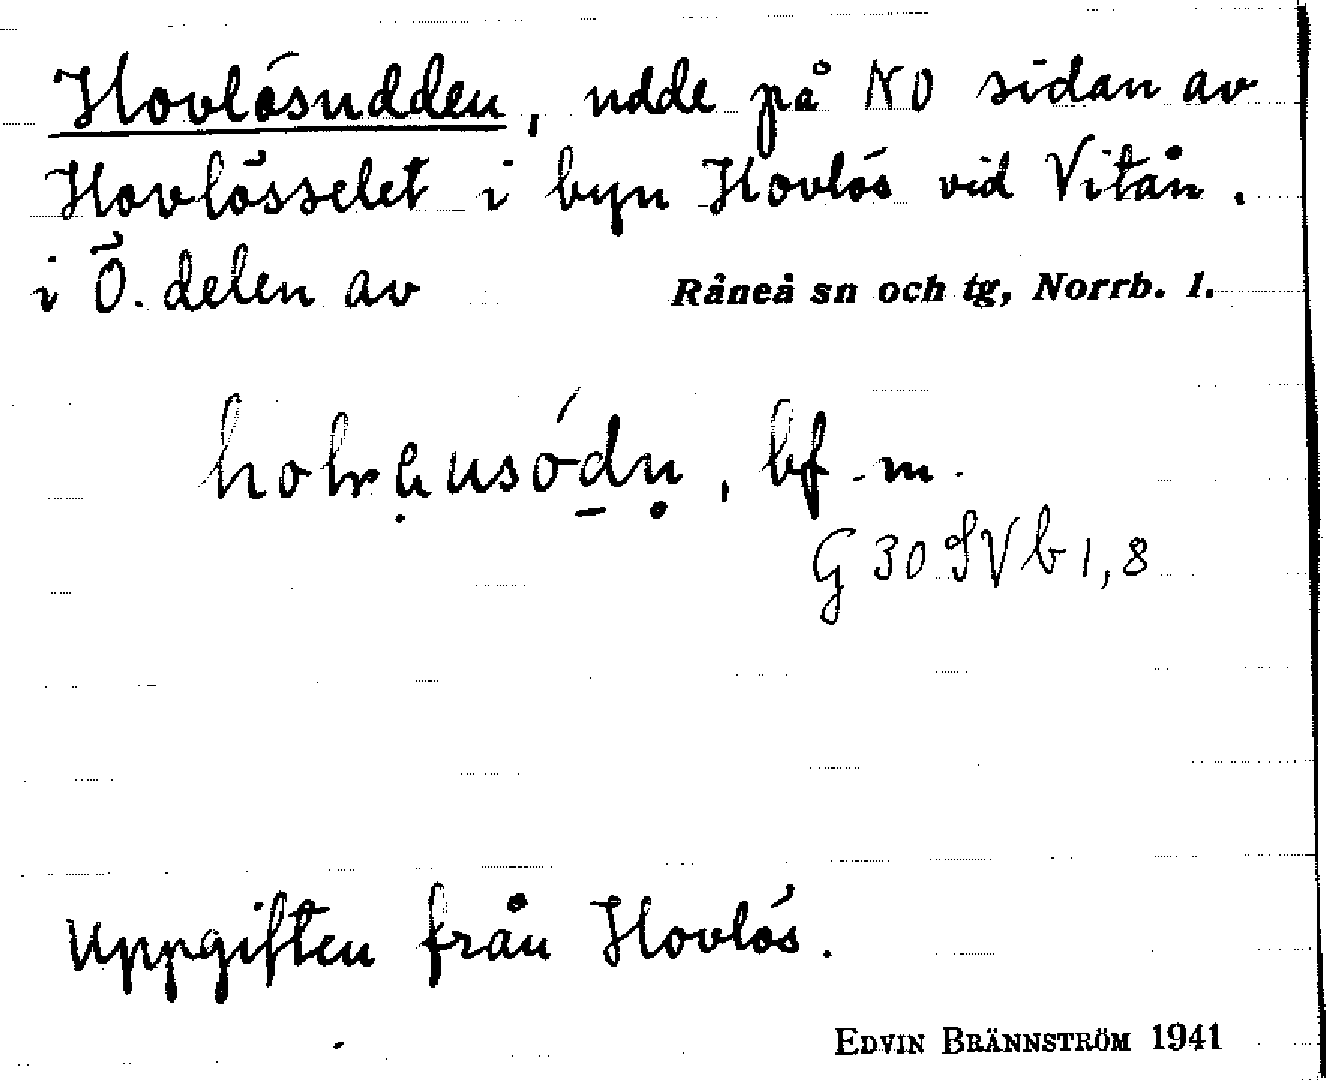 Hovlösudden, udde på NO sidan av
Hovlösselet i byn Hovlös vid Vitån.
i Ö. delen av Råneå sn och tg, Norrb. l.
bf. m.
G 30 SV b 1,8
Uppgiften från Hovlös.
EDVIN BRÄNNSTRÖM 1941